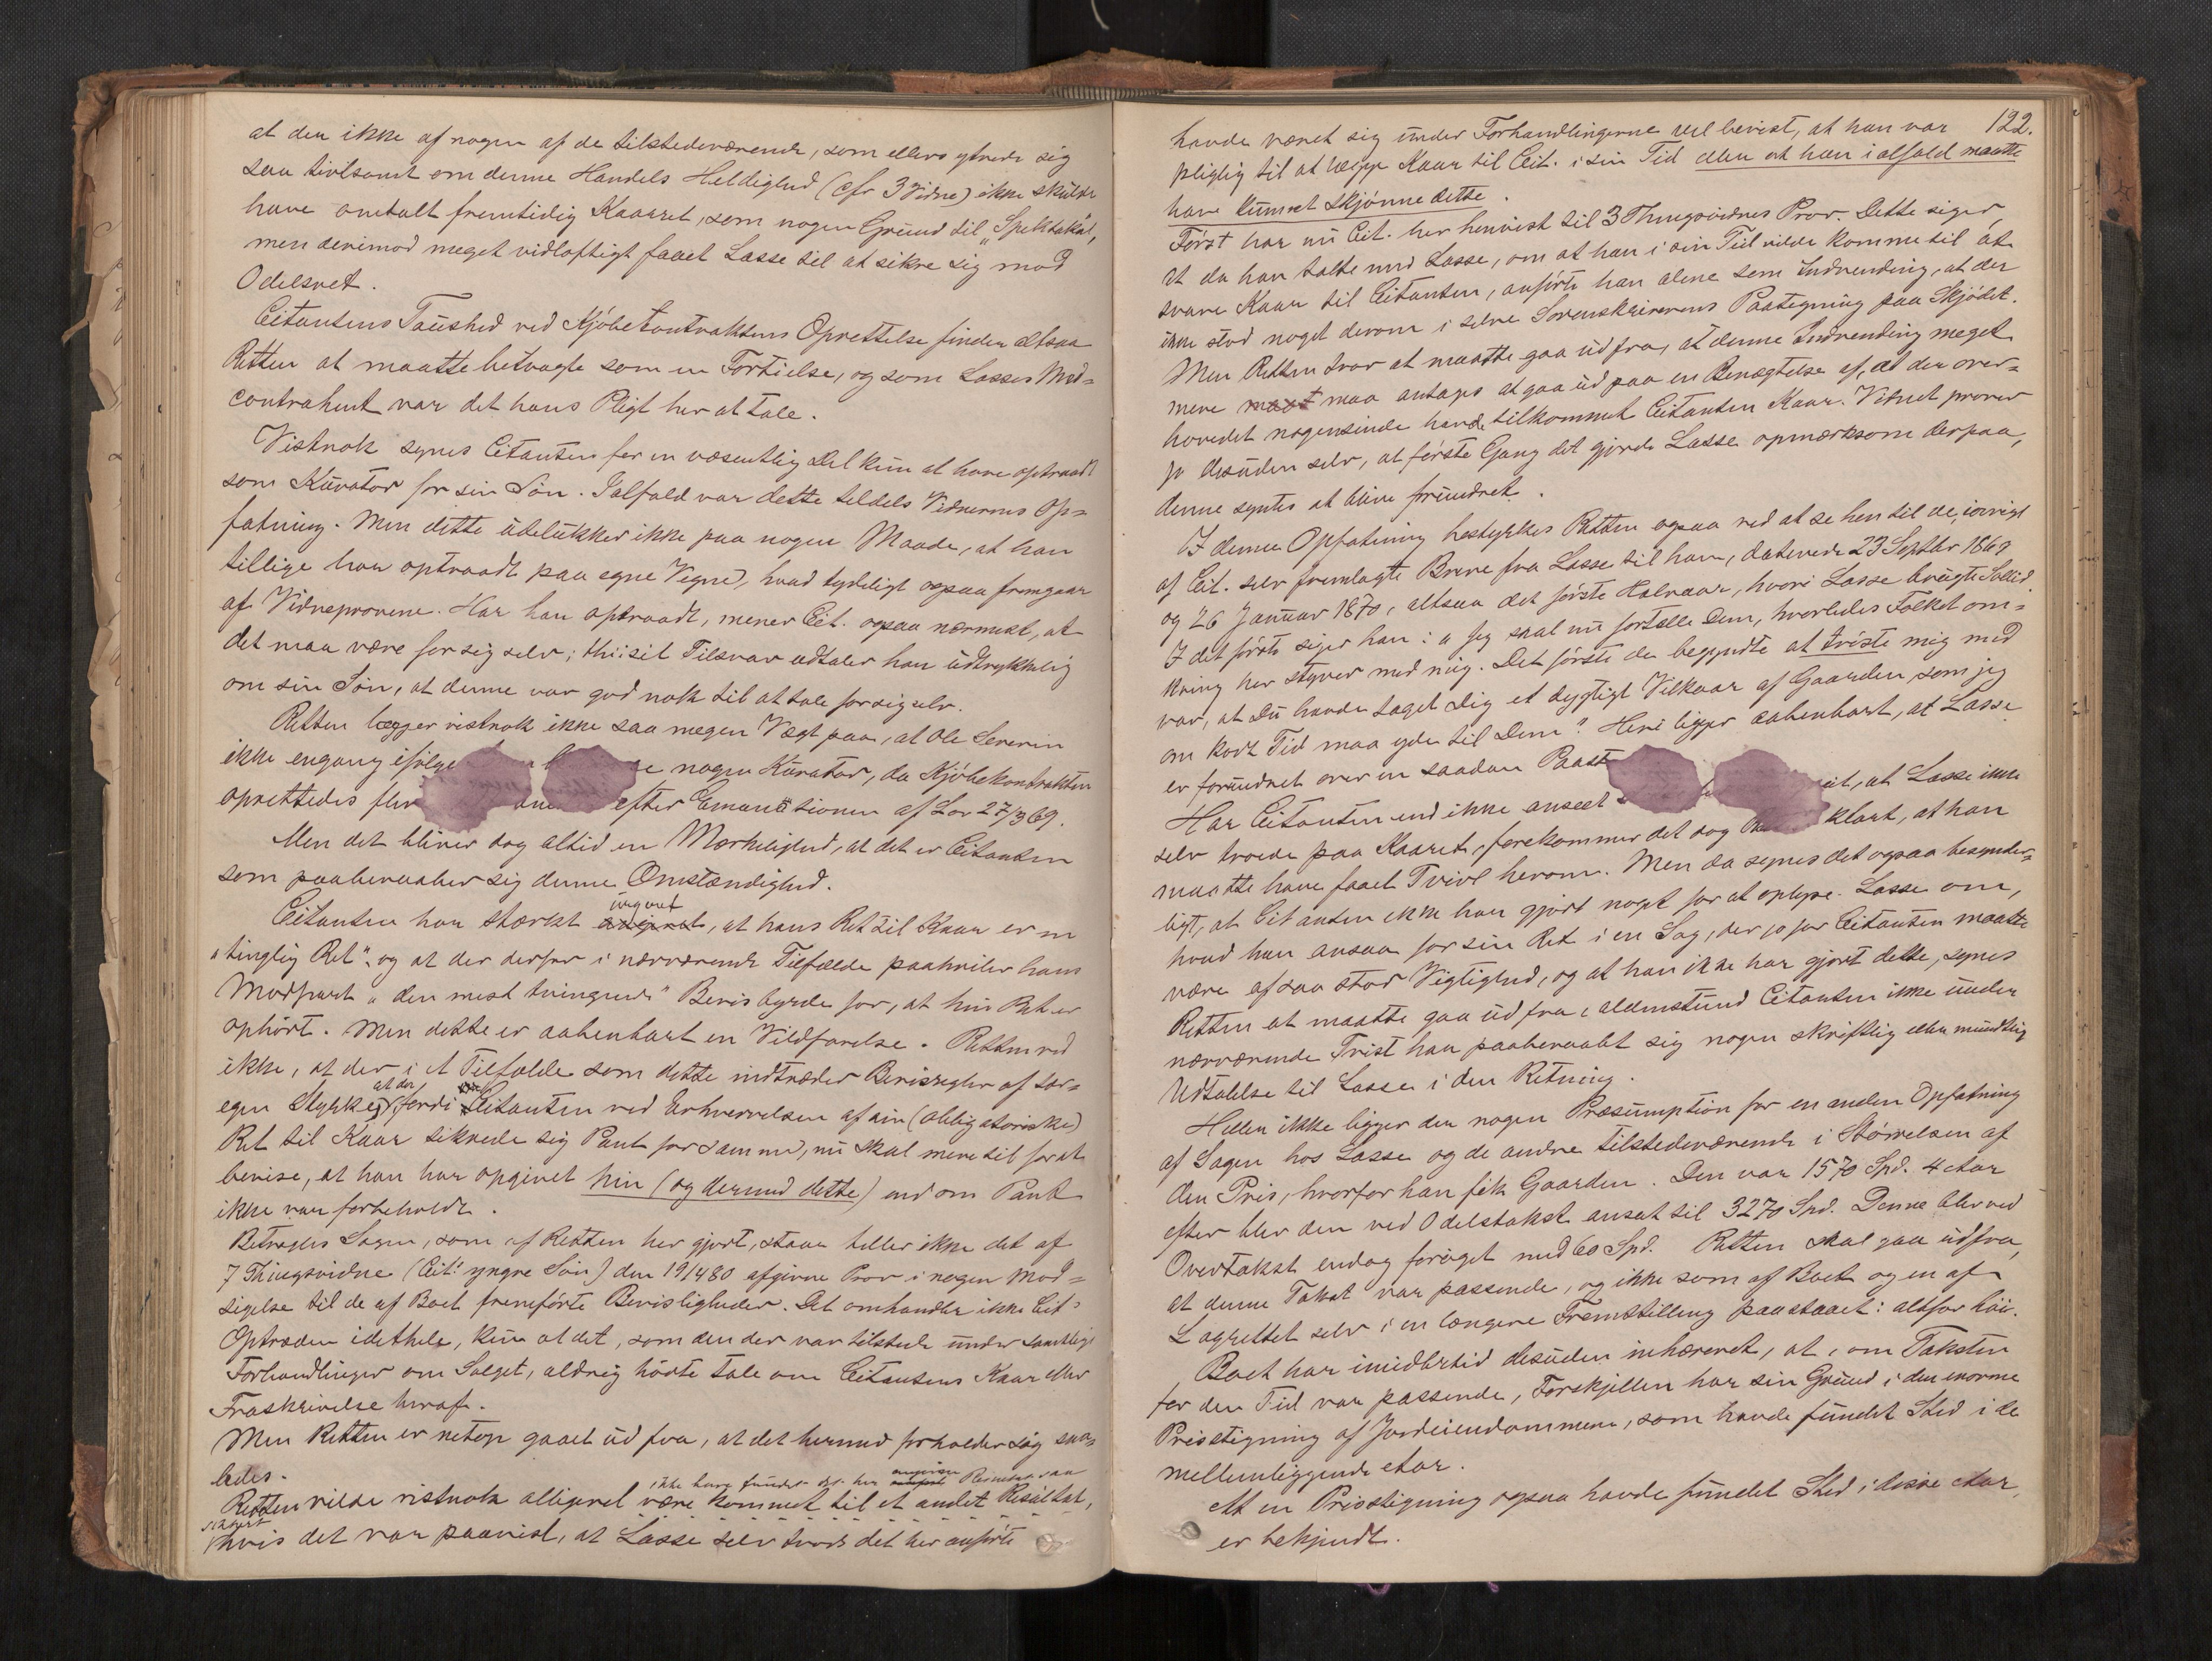 at den ikke af nogen af de tilstedeværende, som ellers ytrede sig
saa tvilsomt om denne Handels Heldighed (cfr 3 Vidne) ikke skulde
have omtalt fremtidig Kaaret, som nogen Grund til "Spektakel",
men derimod meget vidløftigt faaet Lasse til at sikre sig mod
Odelsret.
Citantens Taushed ved Kjøbekontraktens Oprettelse finder altsaa
Retten at maatte betragte som en Fortielse, og som Lasses Med=
contrahent var det hans Pligt her at tale.
Vistnok synes Citanten for en væsentlig Del kun at have optraadt
som Kurator for sin Søn. Ialfald var dette tildels Vidnernes Op=
fatning. Men dette udelukker ikke paa nogen Maade, at han
tillige har optraadt paa egne Vegne, hvad tydeligt ogsaa fremgaar
af Vidneprovene. Har han optraadt, mener Cit. ogsaa nærmest, at
det maa være for sig selv; thi i sit Tilsvar udtaler han udtrykkelig
om sin Søn, at denne var god nok til at tale for sig selv.
Retten lægger vistnok ikke saa megen Vægt paa, at Ole Severin
ikke engang ifølge nogen Kurator, da Kjøbekontrakten
oprettedes efter Emanationen af Lov 27/3 69.
Men det bliver dog altid en Mærkelighed, at det er Citanten
som paaberaaber sig denne Omstændighed.
Citanten har stærkt urgeret, at hans Ret til Kaar er en
"tinglig Ret", og at der derfor i nærværende Tilfælde paahviler hans
Modpart "den mest tvingende" Bevisbyrde for, at hin Ret er
ophørt. Men dette er aabenbart en Vildfarelse. Retten ved
ikke, at der i et Tilfælde som dette indtræder Bevisregler af sær=
egen Stykke, at der, fordi Citanten ved Erhvervelsen af sin (obligatoriske)
Ret til Kaar sikrede sig Pant for samme, nu skal mere til for at
bevise, at han har opgivet hin (og dermed dette) end om Pant
ikke var forbeholdt.
Betragtes Sagen, som af Retten her gjort, staar heller ikke det af
7 Thingsvidne (Cit.s yngre Søn) den 19/4 80 afgivne Prov i nogen Mod=
sigelse til de af Boet fremførte Bevisligheder. Det omhandler ikke Cits
Optræden idethele, kun at det, som den der var tilstede under samtlige
Forhandlinger om Salget, aldrig hørte tale om Citantens Kaar eller
Fraskrivelse heraf.
Men Retten er netop gaaet ud fra, at det hermed forholder sig saa=
ledes.
ikke have fundet det her angivne saa
Retten vilde vistnok alligevel være kommet til et andet Resultat,
sikkert
hvis det var paavist, at Lasse selv trods det her anførte
122.
havde været sig under Forhandlingerne vel bevist, at han var
pligtig til at lægge Kaar til Cit. i sin Tid eller at han i alfald maatte
have kunnet skjønne dette.
Først har nu Cit. her henvist til 3 Thingsvidnes Prov. Dette siger,
at da han talte med Lasse, om at han i sin Tid vilde komme til at
svare Kaar til Citanten, anførte han alene som Indvending, at der
ikke stod noget derom i selve Sorenskriverens Paategning paa Skjødet.
Men Retten tror at maatte gaa ud fra, at denne Indvending meget
mere maa antages at gaa ud paa en Benægtelse af, at der over=
hovedet nogensinde havde tilkommet Citanten Kaar. Vidnet prover
jo desuden selv, at første Gang det gjorde Lasse opmærksom derpaa,
denne syntes at blive forundret.
I denne Opfatning bestyrkes Retten ogsaa ved at se hen til de, iøvrigt
af Cit. selv fremlagte Breve fra Lasse til ham, daterede 23 Septbr 1869
og 26 Januar 1870, altsaa det første Halvaar, hvori Lasse brugte Sollid.
I det første siger han: "Jeg skal nu fortælle Dem, hvorledes Folket om=
kring her styrer med mig. Det første de begyndte at trøste mig med
var, at Du havde taget Dig et dygtigt Vilkaar af Gaarden, som jeg
om kort Tid maa yde til Dem." Heri ligger aabenbart, at Lasse
er forundret over en saadan Paast
Har Citanten end ikke anseet , at Lasse ikke
selv troede paa Kaaret, forekommer det dog klart, at han
maatte have faaet Tvivl herom. Men da synes det ogsaa besynder=
ligt, at Citanten ikke har gjort noget for at oplyse Lasse om,
hvad han ansaa for sin Ret i en Sag, der jo for Citanten maatte
være af saa stor Vigtighed, og at han ikke har gjort dette, synes
Retten at maatte gaa ud fra, aldenstund Citanten ikke under
nærværende Tvist har paaberaabt sig nogen skriftlig eller mundtlig
Udtalelse til Lasse i den Retning.
Heller ikke ligger der nogen Præsumption for en anden Opfatning
af Sagen hos Lasse og de andre tilstedeværende i Størrelsen af
den Pris, hvorfor han fik Gaarden. Den var 1570 Spd. 4 Aar
efter blev den ved Odelstakst ansat til 3270 Spd. Denne blev ved
Overtakst endog forøget med 60 Spd. Retten skal gaa ud fra,
at denne Takst var passende, og ikke som af Boet og en af
Lagrettet selv i en længere Fremstilling paastaaet: altfor høi.
Boet har imidlertid desuden inhæreret, at, om Taksten
for den Tid var passende, Forskjellen har sin Grund i den enorme
Prisstigning af Jordeiendommene, som havde fundet Sted i de
mellemliggende Aar.
At en Prisstigning ogsaa havde fundet Sted i disse Aar,
er bekjendt.